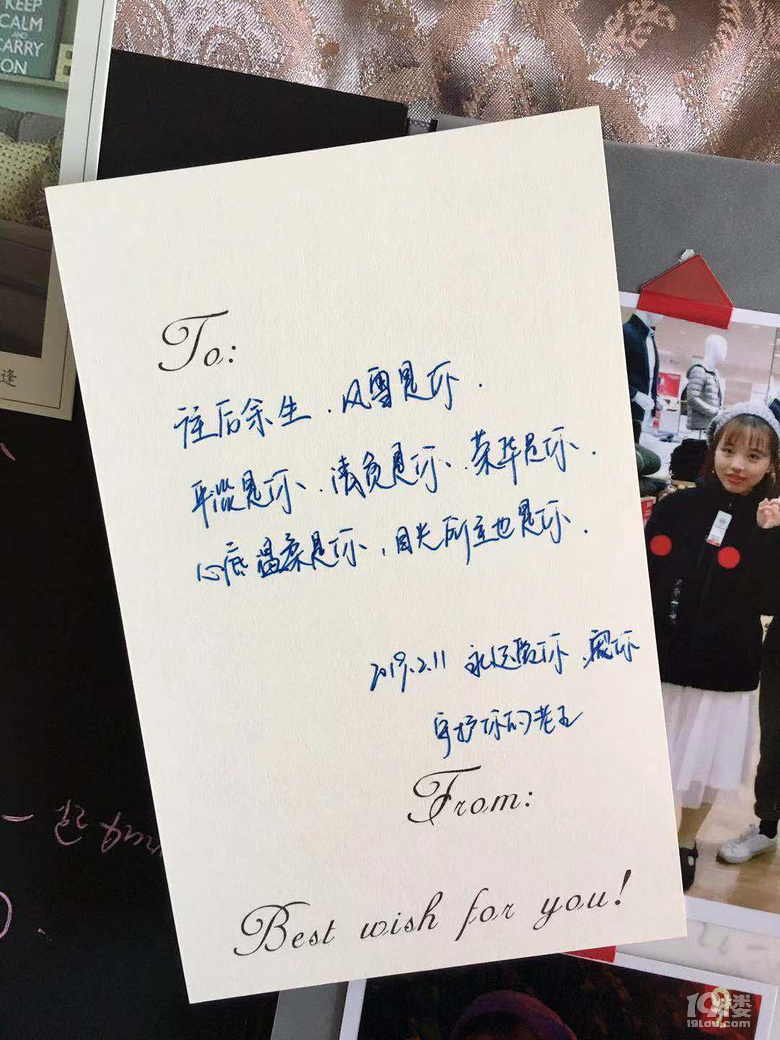 KEEP
CALM
AND
CARRY
ON
逢
To:
往后余生.风雪是你.
平淡是你、清贫是你、荣华是你.
心底温柔是你,目光所至也是你.
2019.2.11 永远爱你、宠你
守护你的老王
From:
Best wish for you!
一起
19楼
19Lou.com